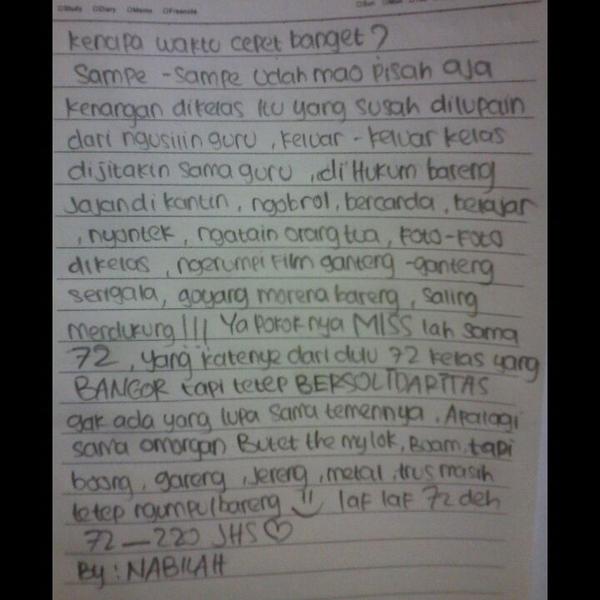 □Study □Diary □Memo □Freenote □Sun
kenapa waktu cepet banget ?
Sampe - Sampe udah mao pisah aja
kenangan dikelas itu yang susah dilupain
dari ngusilin guru , keluar - keluar kelas
dijitakin sama guru , diHukum bareng
Jajan di kantin , ngobrol , bercanda , belajar
, nyontek , ngatain orang tua , Foto - Foto
dikelas , ngerumpi Film ganteng - ganteng
serigala , goyang morena bareng , saling
mendukung !!! Ya pokoknya MISS lah sama
72 , yang katenye dari dulu 72 kelas yang
BANGOR tapi tetep BERSOLIDARITAS
gak ada yang lupa sama temennya . Apalagi
sama omongan Butet the mylok , Boam , tapi
boong , gareng , Jereng , metal , trus masih
tetep ngumpul bareng laf laf 72 deh
72 — 220 JHS ♡
By : NABILAH